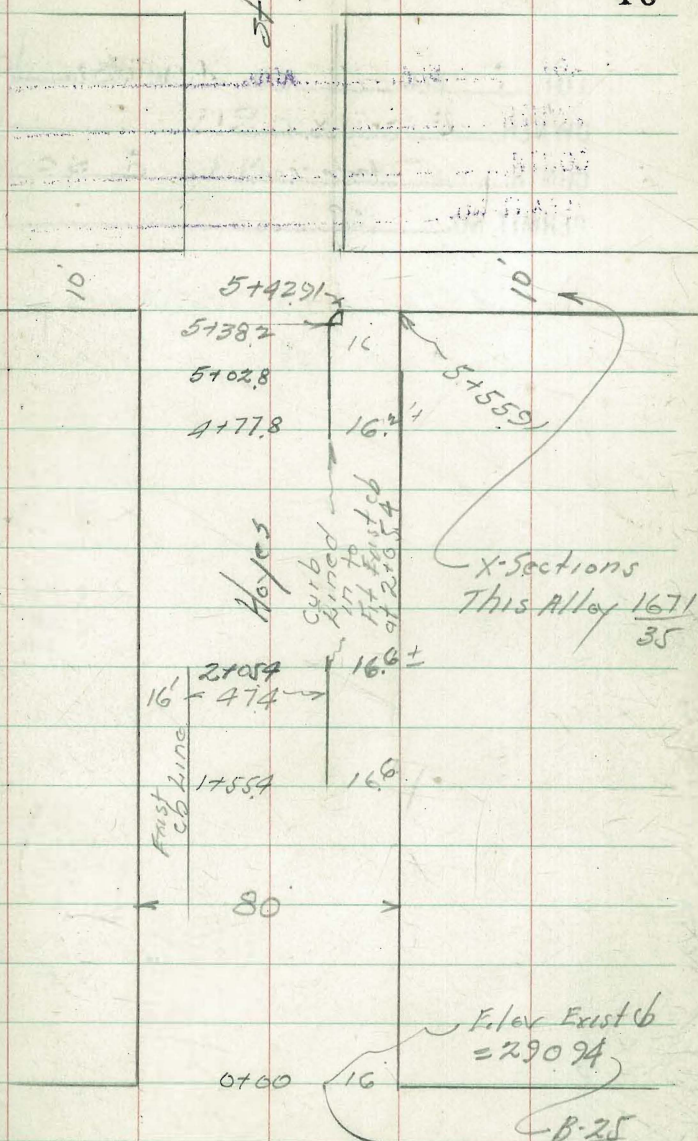 St
10'
10'
5+42.91
5+38.2
16
5+02.8
5+55.91
4+77.8
16.2'±
Hayes
Curb
Lined
in to
Fit Exist cb
at 2+05.4
X-Sections
This Alley 1671/35
2+05.4
16.6±
16'
47.4
Exist
cb Line
1+55.4
16.6
80
Elev Exist cb
=290.94
0+00
16
B-25